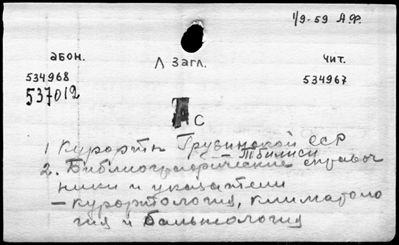 1/9-59 А.Ф.
абон. 1 загл. чит.
534968 534967
537012
АС
1 Курорты Грузинской ССР
– Тбилиси
2. Библиографические справоч
ники и указатели
– курортология, климатоло
гия и бальнеология